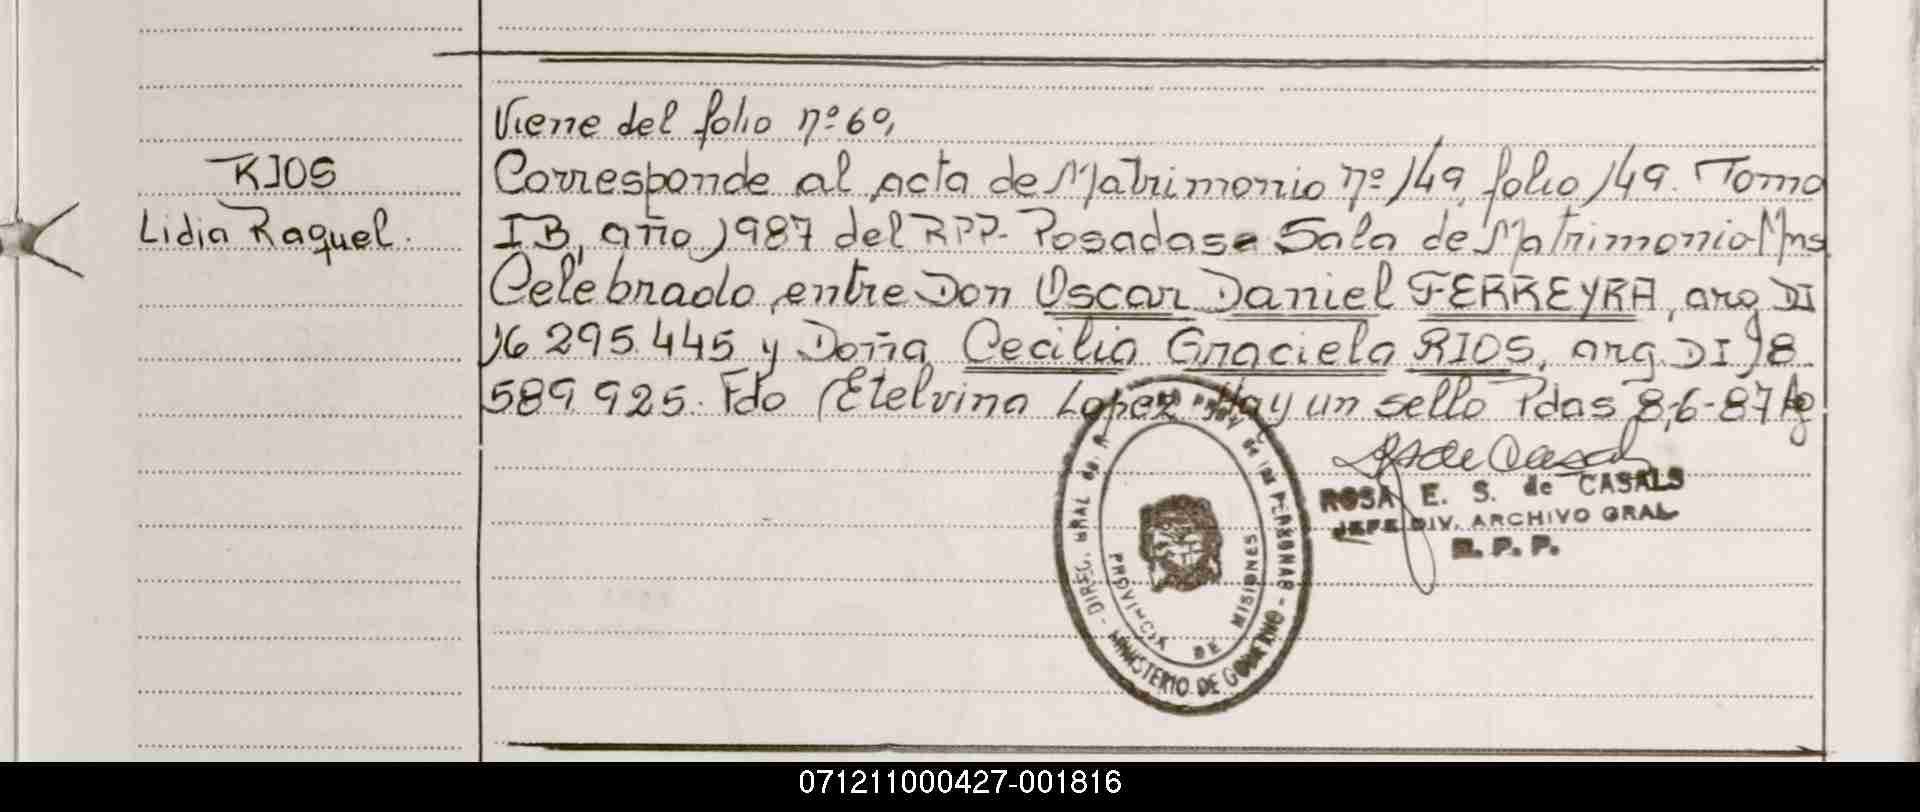 Viene del folio nº 60,
RIOS
Lidia Raquel.
Corresponde al acta de Matrimonio nº 149, folio 149. Tomo
IB, año 1987 del RPP- Posadas- Sala de Matrimonio-Mns.
Celebrado, entre Don Oscar Daniel FERREYRA, arg DI
16 295.445 y Doña Cecilia Graciela RIOS, arg. DI 18
589 925. Fdo Etelvina Lopez Hay un sello Pdas 8-6-87
ROSA E. S. de CASALS
JEFE DIV. ARCHIVO GRAL
R. P. P.
DIREC. GRAL de de las PERSONAS - MINISTERIO DE GOBIERNO -
PROVINCIA DE MISIONES
071211000427-001816